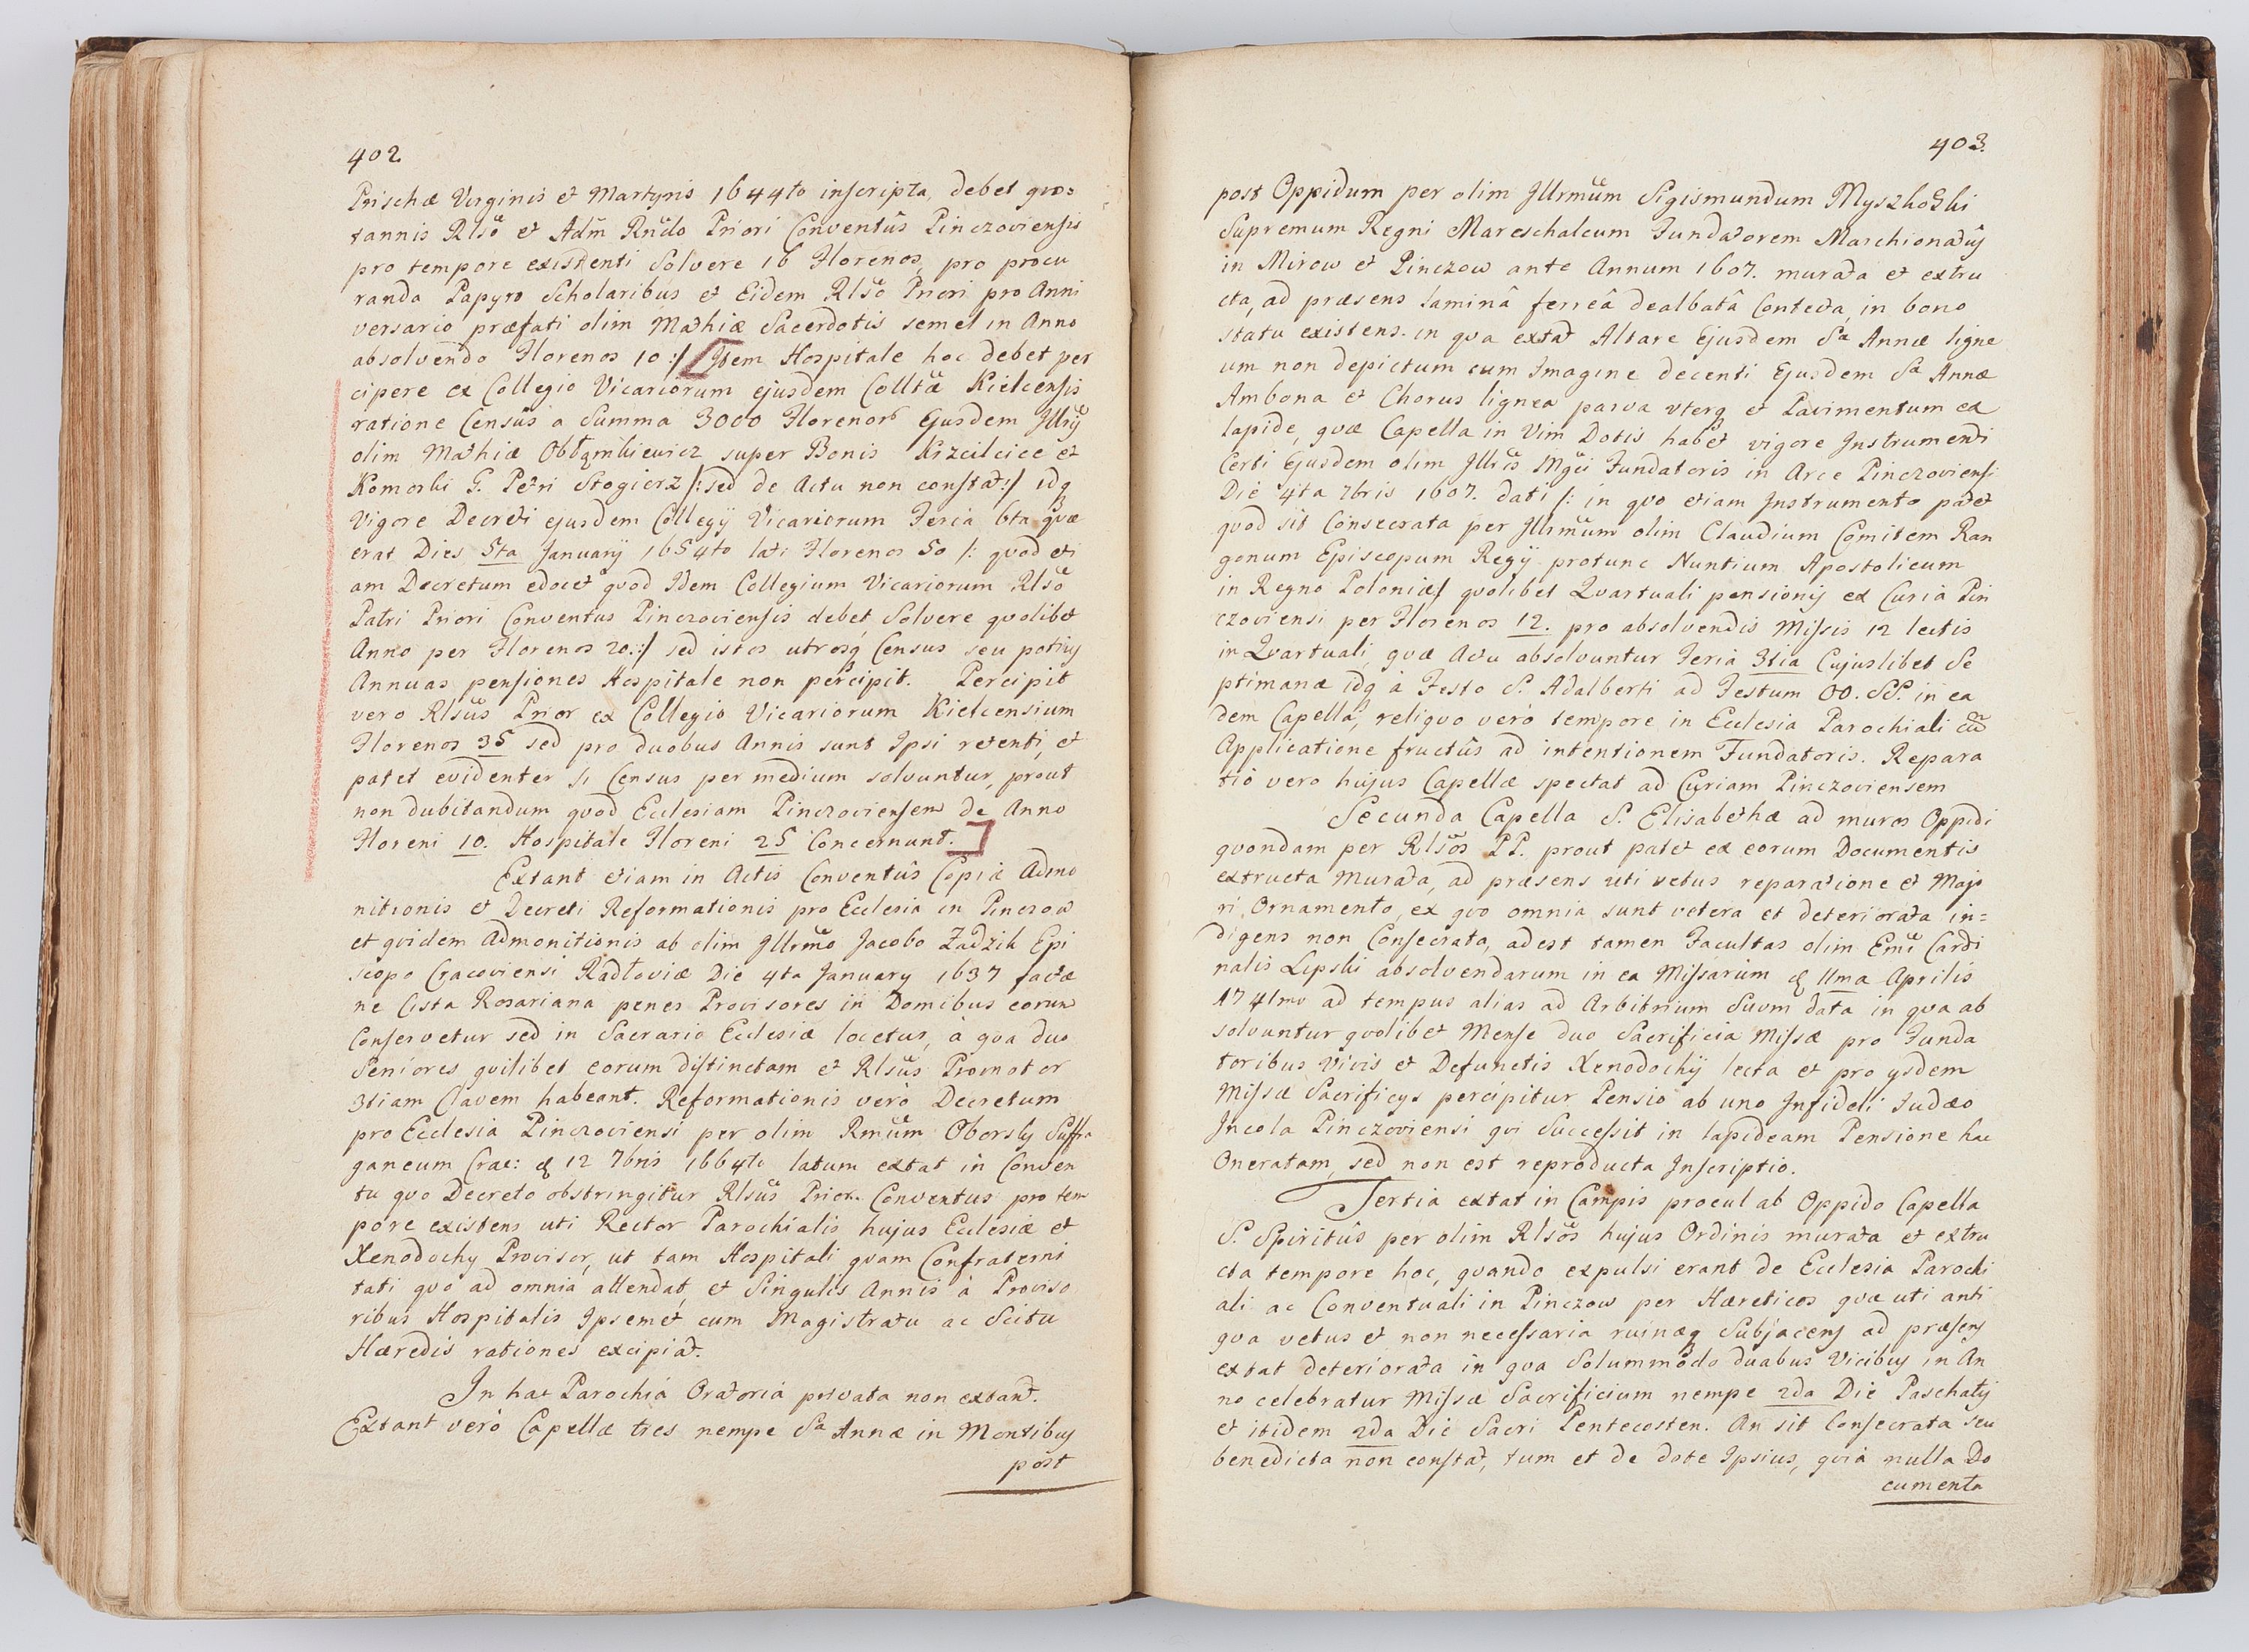 402
Prischæ Virginis et Martyris 1644to inscripta, debet quo=
tannis Rlso et Adm Rndo Priori Conventûs Pinczoviensis
pro tempore existenti Solvere 16 Florenos, pro procu
randa Papyro Scholaribus et Eidem Rlso Priori pro Anni
versario præfati olim Mathiæ Sacerdotis semel in Anno
absolvendo Florenos 10 :/ Item Hospitale hoc debet per
cipere ex Collegio Vicariorum ejusdem Colltæ Kielcensis
ratione Censûs a Summa 3000 Florenor Ejusdem Illrij
olim Mathiæ super Bonis et
Komorki G. Petri Stogierz /: sed de Actu non constat :/ idq
Vigore Decreti ejusdem Collegij Vicariorum Feria 6ta quæ
erat Dies 5ta Januarij 1654to lati Florenos 50 /: quod eti
am Decretum edocet quod Idem Collegium Vicariorum Rlso
Patri Priori Conventus Pinczoviensis debet Solvere quolibet
Anno per Florenos 20 :/ sed istos utrosq Census seu potius
Annuas pensiones Hospitale non percipit. Percipit
vero Rlsus Prior ex Collegio Vicariorum Kielcensium
Florenos 35 sed pro duobus Annis sunt Ipsi retenti, et
patet evidenter si Census per medium solvuntur, prout
non dubitandum quod Ecclesiam Pinczoviensem de Anno
Floreni 10. Hospitale Floreni 25 Concernunt.
Extant etiam in Actis Conventûs Copiæ Admo
nitionis et Decreti Reformationis pro Ecclesia in Pinczow
et quidem Admonitionis ab olim Illrmo Jacobo Zadzik Epi
scopo Cracoviensi Radłoviæ Die 4ta January 1637 factæ
ne Cista Rosariana penes Provisores in Domibus eorum
Conservetur sed in Sacrario Ecclesiæ locetur, à qua duo
Seniores quilibet eorum distinctam et Rlsus Promotor
3tiam Clavem habeant. Reformationis verò Decretum
pro Ecclesia Pinczoviensi per olim Rmum Oborsky Suffra
ganeum Crac: d 12 7bris 1664to latum extat in Conven
tu quo Decreto obstringitur Rlsus Prior Conventus pro tem
pore existens uti Rector Parochialis hujus Ecclesiæ et
Xenodochy Provisor, ut tam Hospitali quam Confraterni
tati quo ad omnia attendat, et Singulis Annis à Proviso
ribus Hospitalis Ipsemet cum Magistratu ac Scitu
Hæredis rationes excipiat.
In hac Parochiá Oratoria privata non extant.
Extant verò Capellæ tres nempe Sa Annæ in Montibus
post
403.
post Oppidum per olim Illrmum Sigismundum Myszkoski
Supremum Regni Mareschalcum Fundatorem Marchionatûs
in Mirow et Pinczow ante Annum 1607. murata et extru
cta, ad præsens laminâ ferreâ dealbatâ Contecta, in bono
statu existens. in qva extat Altare Ejusdem Sa Annæ ligne
um non depictum cum Imagine decenti Ejusdem Sa Annæ
Ambona et Chorus lignea parva vterq et Pavimentum ex
lapide, quæ Capella in Vim Dotis habet vigore Instrumenti
Certi Ejusdem olim Illris Mgci Fundatoris in Arce Pinczoviensi
Die 4ta 7bris 1607. dati /: in quo etiam Instrumento patet
quod sit Consecrata per Illrmum olim Claudium Comitem Ran
gonum Episcopum Regij protunc Nuntium Apostolicum
in Regno Poloniæ/ quolibet Quartuali pensionij ex Curia Pin
czoviensi per Florenos 12. pro absolvendis Missis 12 lectis
in Quartuali, quæ Actu absolvuntur Feria 3tia Cujuslibet Se
ptimanæ idq à Festo S. Adalberti ad Festum OO. SS. in ea
dem Capella, reliquo verò tempore in Ecclesia Parochiali cu
Applicatione fructûs ad intentionem Fundatoris. Repara
tio vero hujus Capellæ spectat ad Curiam Pinczoviensem
Secunda Capella S. Elisabethæ ad muros Oppidi
quondam per Rlsos PP. prout patet ex eorum Documentis
extructa Murata, ad præsens uti vetus reparatione et Majo
ri Ornamento, ex quo omnia sunt vetera et deteriorata in=
digens non Consecrata, adest tamen Facultas olim Emi Cardi
nalis Lipski absolvendarum in ea Missarum d 11ma Aprilis
1741mo ad tempus alias ad Arbitrium Suum data in qua ab
solvuntur quolibet Mense duo Sacrificia Missæ pro Funda
toribus Vivis et Defunctis Xenodochij lecta et pro ysdem
Missæ Sacrificys percipitur Pensio ab uno Infideli Judæo
Incola Pinczoviensi qui Successit in lapideam Pensione hac
Oneratam, sed non est reproducta Inscriptio.
Tertia extat in Campis procul ab Oppido Capella
S. Spiritûs per olim Rlsos hujus Ordinis murata et extru
cta tempore hoc, quando expulsi erant de Ecclesia Parochi
ali ac Conventuali in Pinczow per Hæreticos quæ uti anti
qua vetus et non necessaria ruinæq Subjacens ad præsens
extat deteriorata in qua Solummodo duabus Vicibus in An
no celebratur Missæ Sacrificium nempe 2da Die Paschatis
et itidem 2da Die Sacri Pentecosten. An sit Consecrata seu
benedicta non constat, tum et de dote Ipsius, quia nulla Do
cumenta